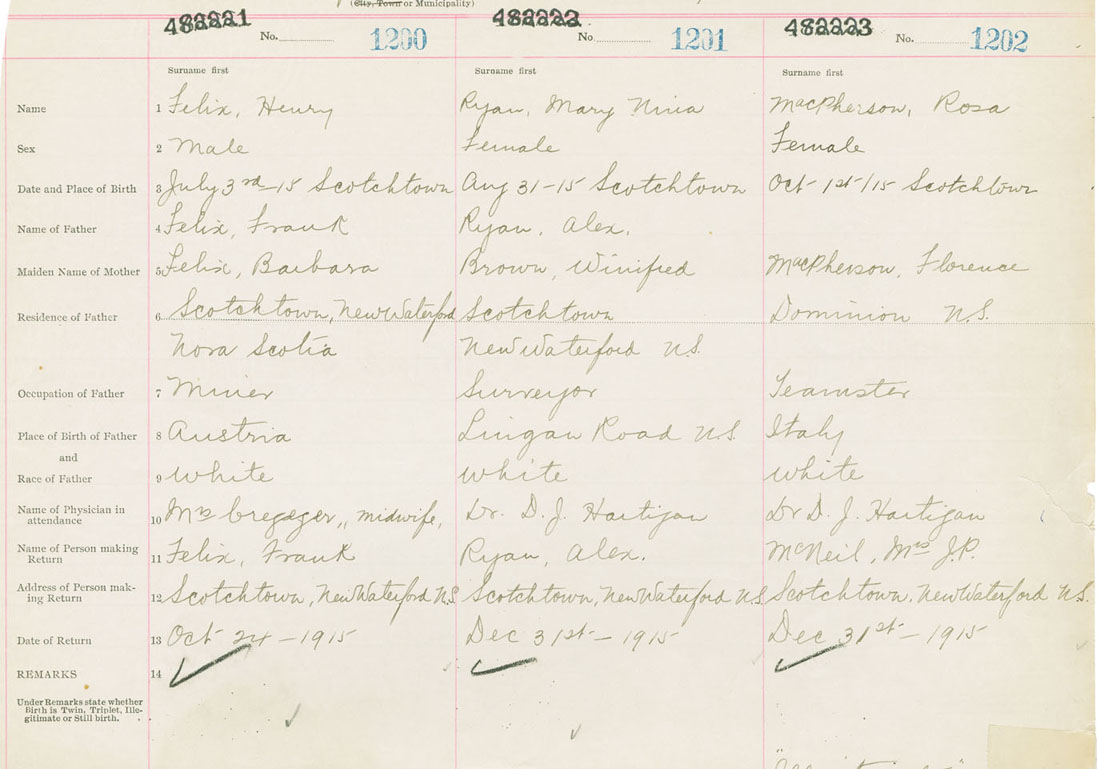 (City, Town or Municipality)
482221 482222 482223
No. 1200 No. 1201 No. 1202
Surname first Surname first Surname first
Name 1 Felix, Henry Ryan, Mary Nina MacPherson, Rosa
Sex 2 Male Female Female
Date and Place of Birth 3 July 3rd-15 Scotchtown Aug 31-15 Scotchtown Oct 1st/15 Scotchtown
Name of Father 4 Felix, Frank Ryan, Alex.
Maiden Name of Mother 5 Felix, Barbara Brown, Winifred MacPherson, Florence
Residence of Father 6 Scotchtown, New Waterford Scotchtown Dominion N.S.
Nova Scotia New Waterford N.S.
Occupation of Father 7 Miner Surveyor Teamster
Place of Birth of Father 8 Austria Lingan Road N.S. Italy
and
Race of Father 9 White White White
Name of Physician in
attendance 10 Mrs midwife, Dr. D. J. Hartigan Dr D. J. Hartigan
Name of Person making
Return 11 Felix, Frank Ryan, Alex. McNeil, Mrs J.P.
Address of Person mak-
ing Return 12 Scotchtown, New Waterford N.S. Scotchtown, New Waterford N.S. Scotchtown, New Waterford N.S.
Date of Return 13 Oct 24-1915 Dec 31st-1915 Dec 31st-1915
REMARKS 14
Under Remarks state whether
Birth is Twin, Triplet, Ille-
gitimate or Still birth.